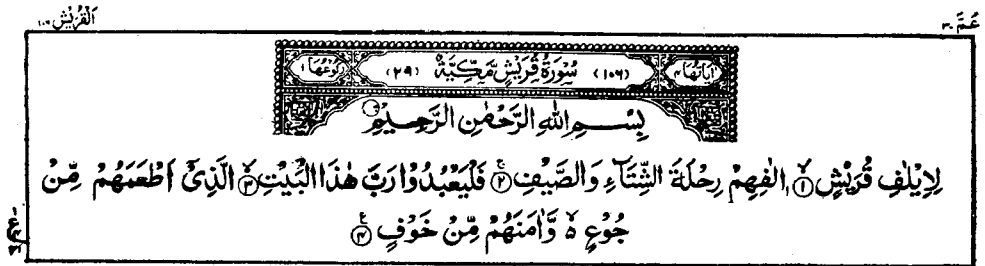 عَمَّ ٣٠
الْقُرَيْش ١٠٦
اٰیَاتُهَا ٤ (١٠٦) سُوْرَةُ قُرَيْشٍ مَّكِّيَّةٌ (٢٩) رُكُوْعُهَا ١
بِسْمِ اللّٰهِ الرَّحْمٰنِ الرَّحِيْمِ
لِاِيْلٰفِ قُرَيْشٍ ۙ﴿١﴾ اٖلٰفِهِمْ رِحْلَةَ الشِّتَآءِ وَالصَّيْفِ ۚ﴿٢﴾ فَلْيَعْبُدُوْا رَبَّ هٰذَا الْبَيْتِ ۙ﴿٣﴾ الَّذِيْٓ اَطْعَمَهُمْ مِّنْ
جُوْعٍ ۙ٥ وَّاٰمَنَهُمْ مِّنْ خَوْفٍ ﴿٤﴾ ع